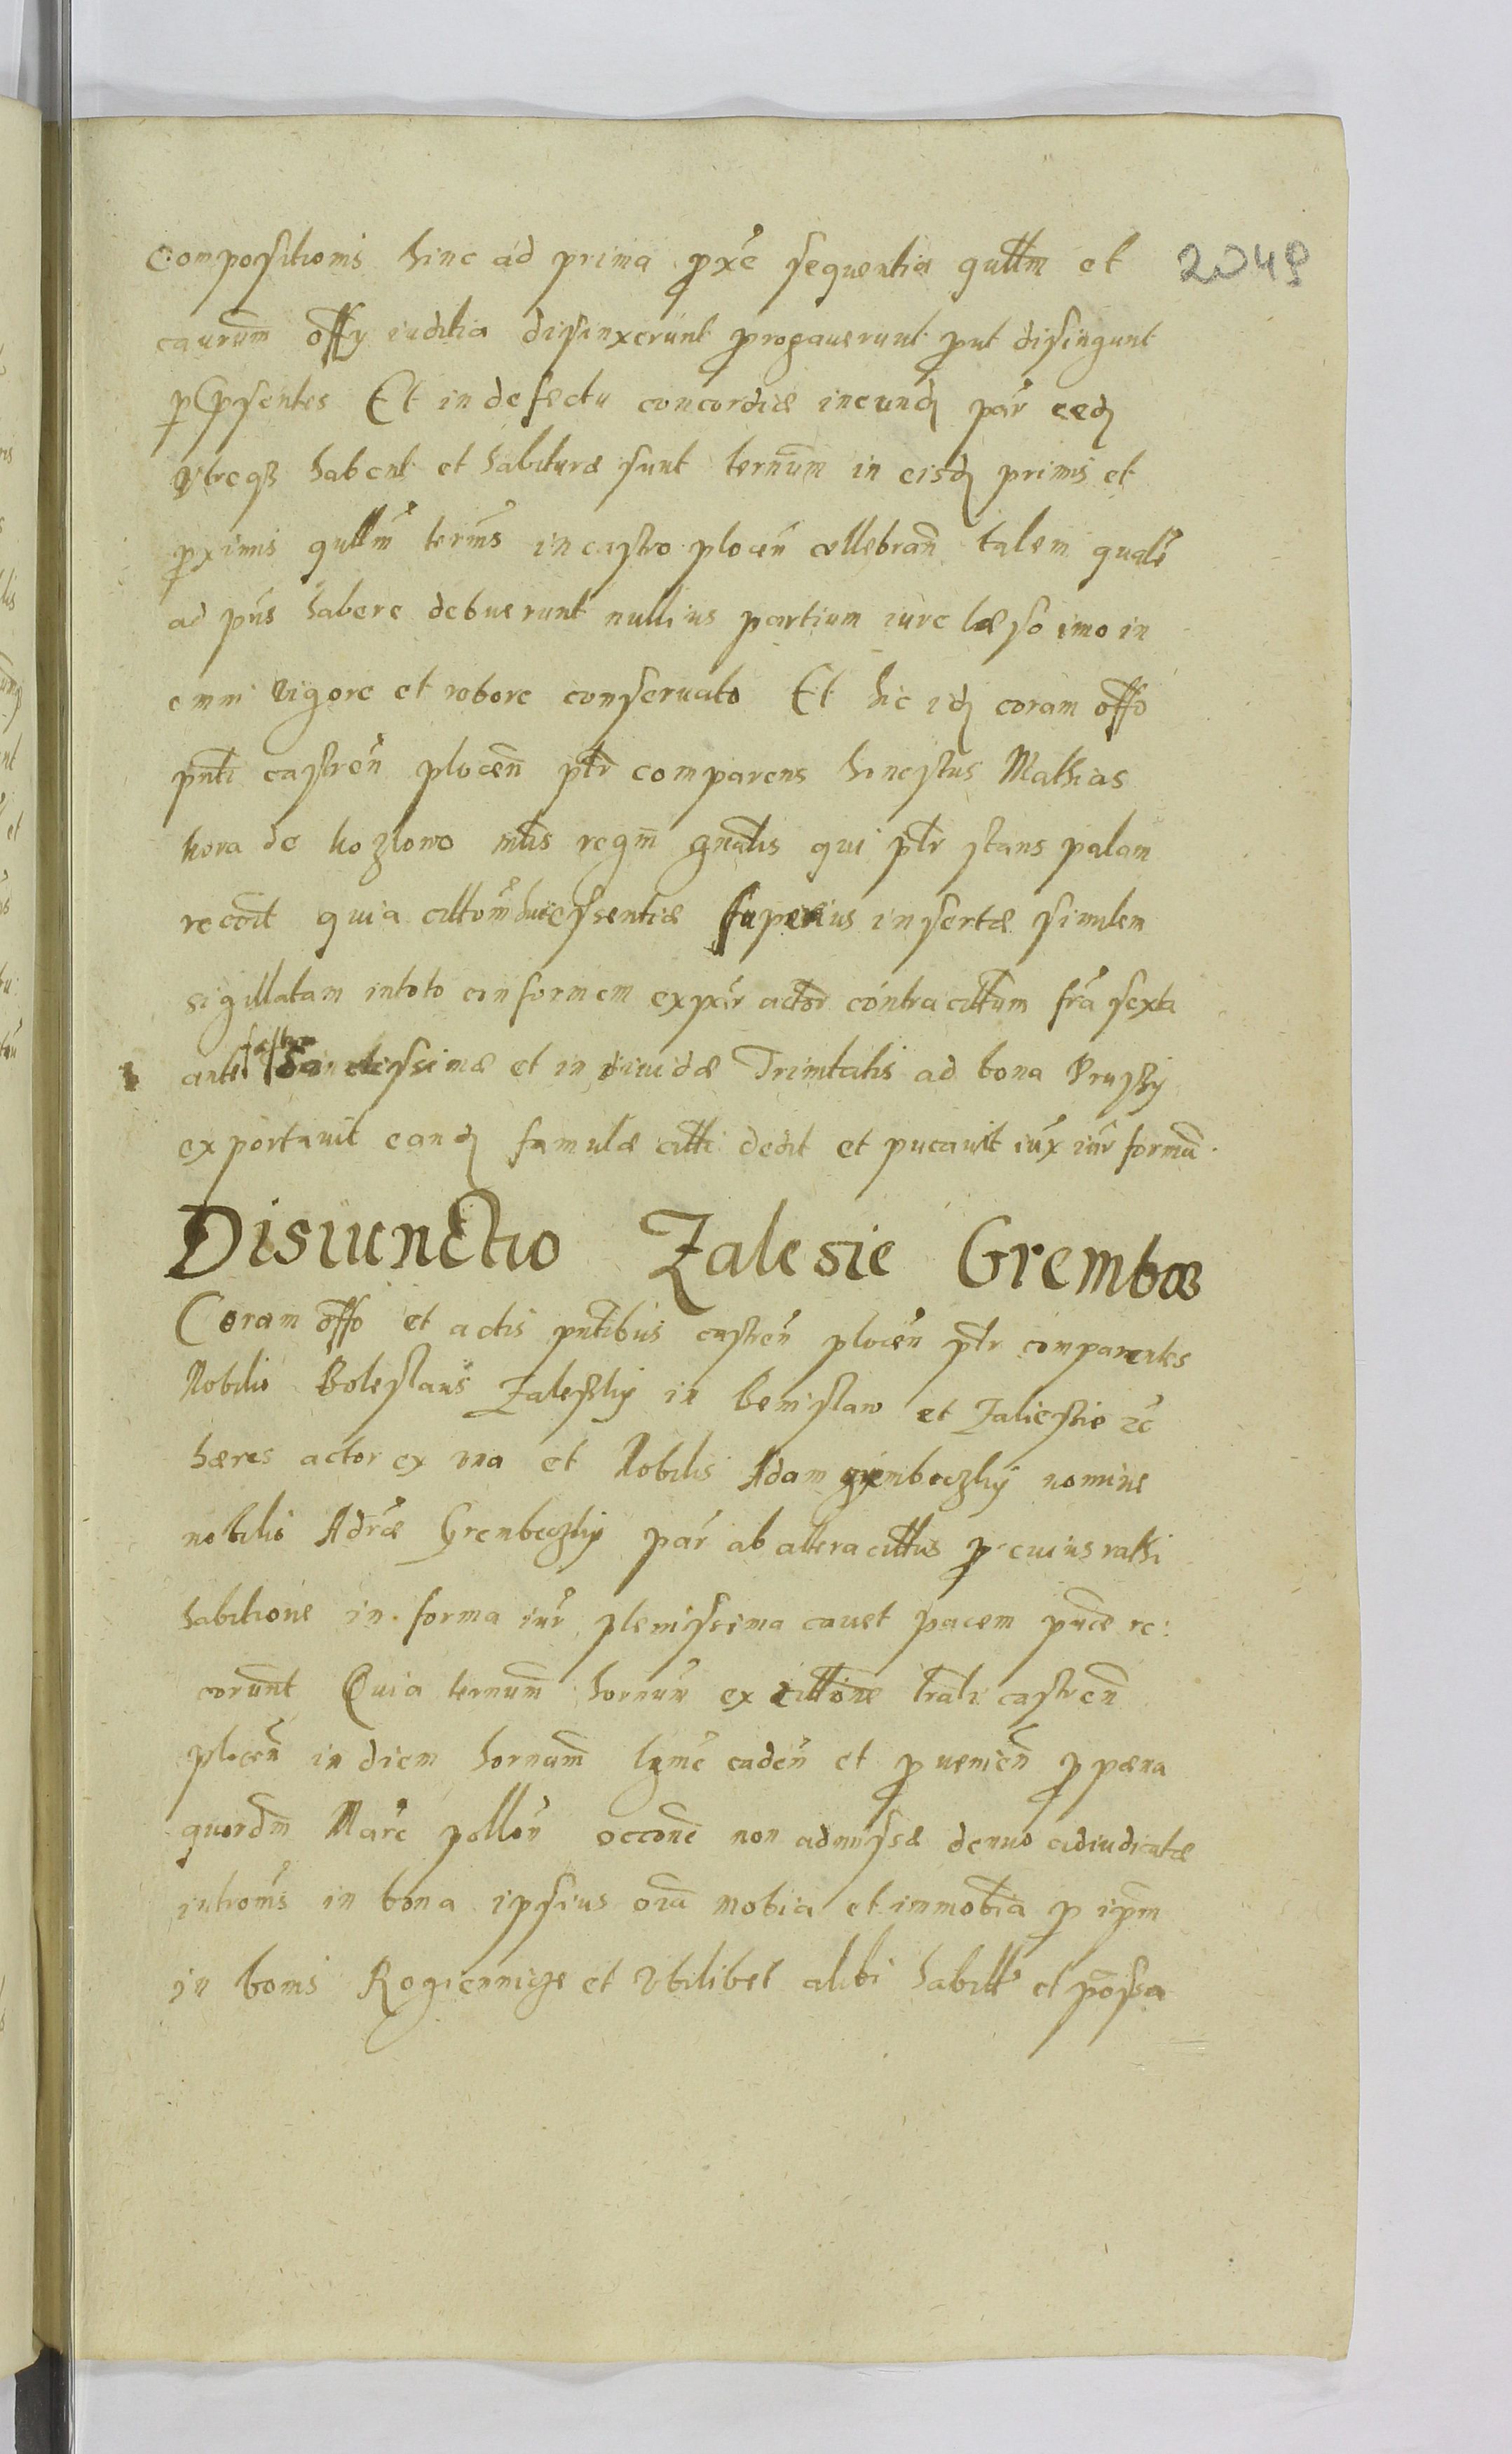 compositionis hinc ad prima pxe sequentia qullm et 2048
caurum offy iuditia disiunxerunt prorogauerunt put disiungunt
p psentes Et in defectu concordiæ ineund par eed
vtreqз habent et habituræ sunt ternum in eisd primis et
pximis qullm termis in castro plocen cellebran talem quale
ad pns habere debuerunt nullius partium iure læso imo in
omni vigore et robore conseruato Et hic id coram offo
pnti castren plocen ptr comparens honestus Mathias
kora de kozlowo mtis regin gnalis qui ptr stans palam
recoit quia cittom huic essentiæ superius insertæ similem
sigillatam in toto conformem ex par actor contra cittum fra sexta
ante festum Sanctissimæ et indiuiduæ Trinitatis ad bona Prussy
exportauit eand famulæ citti dedit et pucauit iux iur forma
Disiunctio Zalesie Gremboз
Coram offo et actis pntibus castren plocen ptr comparentes
Nobilis Boleslaus Zalesky in Bemislaw et Zaliesie zc
hæres actor ex vna et Nobilis Adam grembeczky nomine
nobilis Adræ Grenbeczky par ab altera cittus p cuius rathi
habitione in forma iur plenissima cauet pacem pnce re:
corunt Quia ternum hornum ex cittone trali castren
plocen in diem hornum lgme caden et pvenien p pæna
quordm Marc pollon occone non admissæ denuo adiudicatæ
intromis in bona ipsius oia mobia et immobia p ipm
in bonis Rogiennicze et Vbilibet alibi habitt et possa